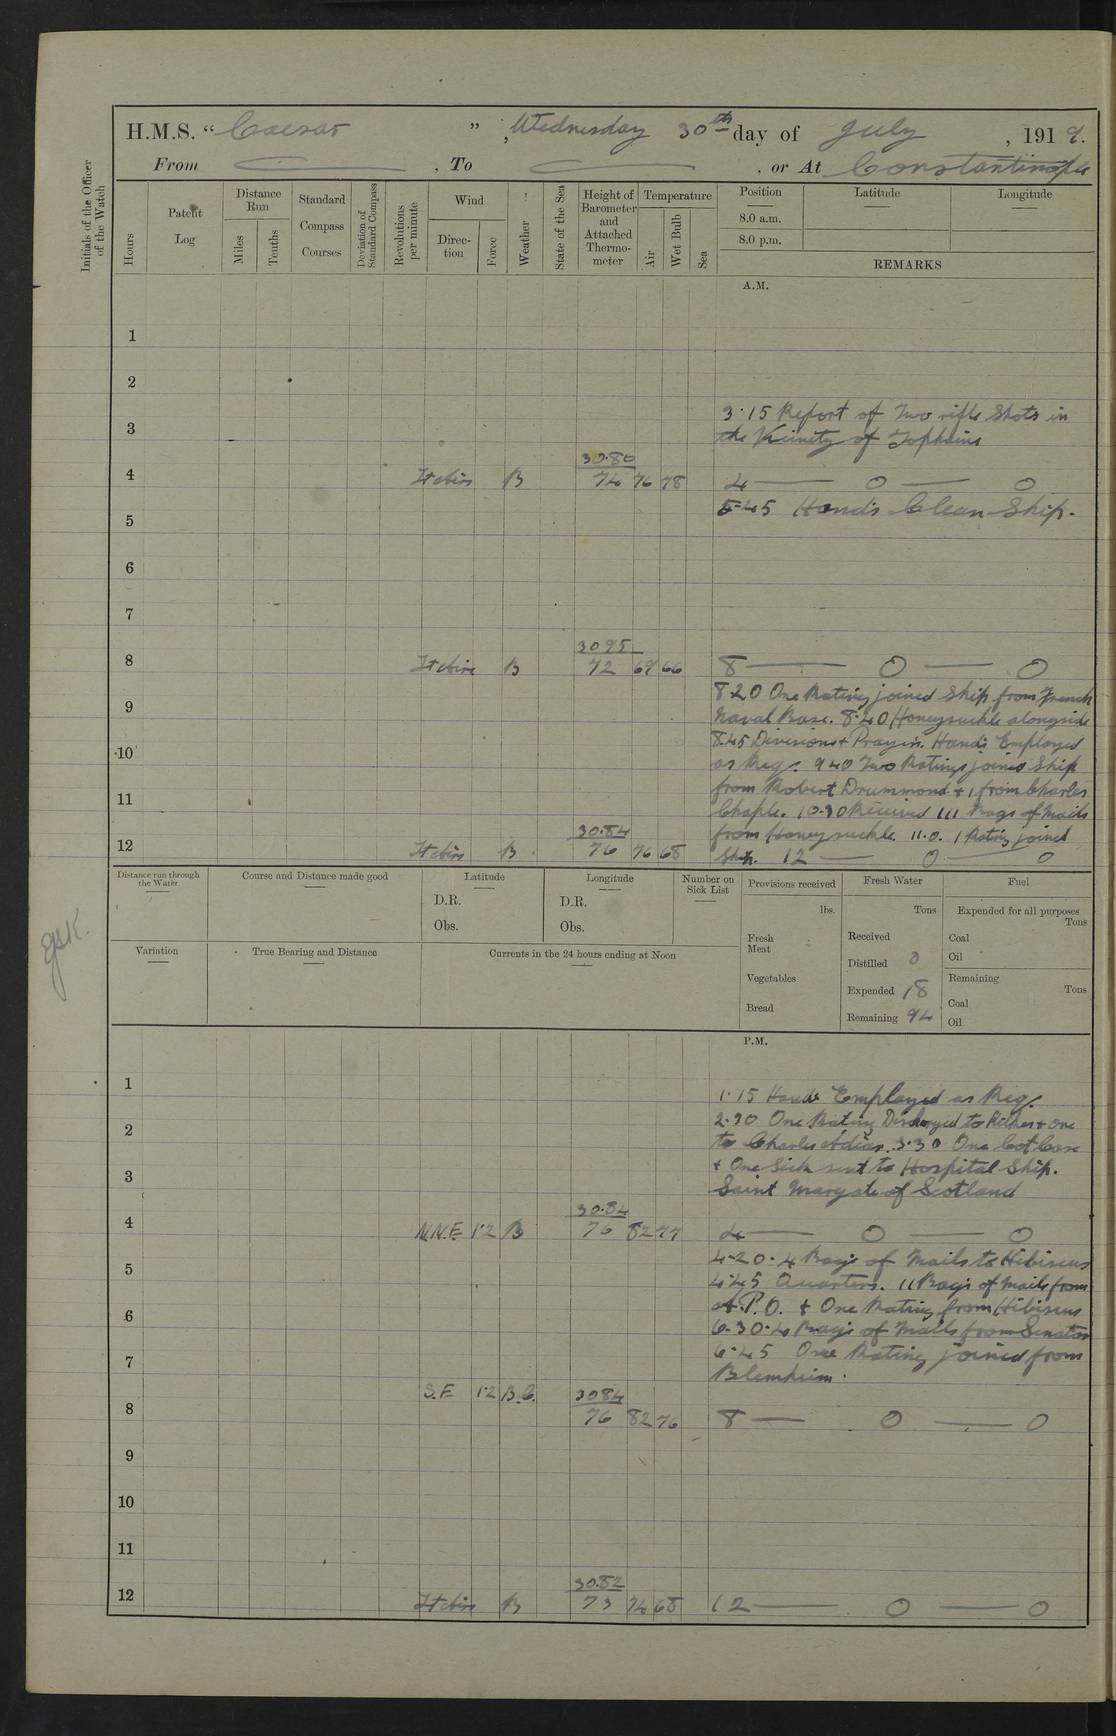 H.M.S. " Caesar " , Wednesday 30th day of July , 1919.
From , To , or At Constantinople
Initials of the Officer of the Watch
Hours
Patent Log
Distance Run
Miles
Tenths
Standard Compass Courses
Deviation of Standard Compass
Revolutions per minute
Wind
Direction
Force
Weather
State of the Sea
Height of Barometer and Attached Thermometer
Temperature
Air
Wet Bulb
Sea
Position
8.0 a.m.
8.0 p.m.
Latitude
Longitude
REMARKS
A.M.
1
2
3·15 Report of Two rifle Shots in
3
the Vicinity of
30·80
4 B 74 76 78 4 — 0 — 0
5-45 Hands Clean Ship.
5
6
7
30 95
8 B 72 69 66 8 — 0 — 0
8·20 One Rating joined Ship from French
9
Naval Base. 8·40 Honeysuckle alongside
8.45 Divisions + Prayers. Hands Employed
10
as Req. 9 40 Two Ratings joined Ship
from Robert Drummond + 1 from Charles
11
Chaple. 10·30 Received 111 Bags of Mails
30.84
from Honeysuckle. 11.0. 1 Rating joined
12 B 76 76 68 Ship. 12 — 0 — 0
Distance run through the Water
Course and Distance made good
Latitude
D.R.
Obs.
Longitude
D.R.
Obs.
Number on Sick List
Provisions received
lbs.
Fresh Meat
Vegetables
Bread
Fresh Water
Tons
Received
Distilled 0
Expended 18
Remaining 94
Fuel
Expended for all purposes
Tons
Coal
Oil
Remaining
Tons
Coal
Oil
Variation
True Bearing and Distance
Currents in the 24 hours ending at Noon
P.M.
1
1·15 Hands Employed as Req.
2.30 One Rating Discharged to + one
2
to Charles 3·30 One Cot Case
+ One Sick sent to Hospital Ship.
3
Saint Margate of Scotland
30.84
4 N.N.E. 1·2 B 76 82 77 4 — 0 — 0
4-20·4 Bags of Mails to Hibiscus
5
4·45 Quarters. 11 Bags of Mails from
A.P.O. + One Rating from Hibiscus
6
6-30·4 Bags of Mails from Senator
6·45 One Rating joined from
7
Blenheim.
S.E. 1·2 B.C. 30 84
8 76 82 76 8 — 0 — 0
9
10
11
30.82
12 B 73 74 68 12 — 0 — 0